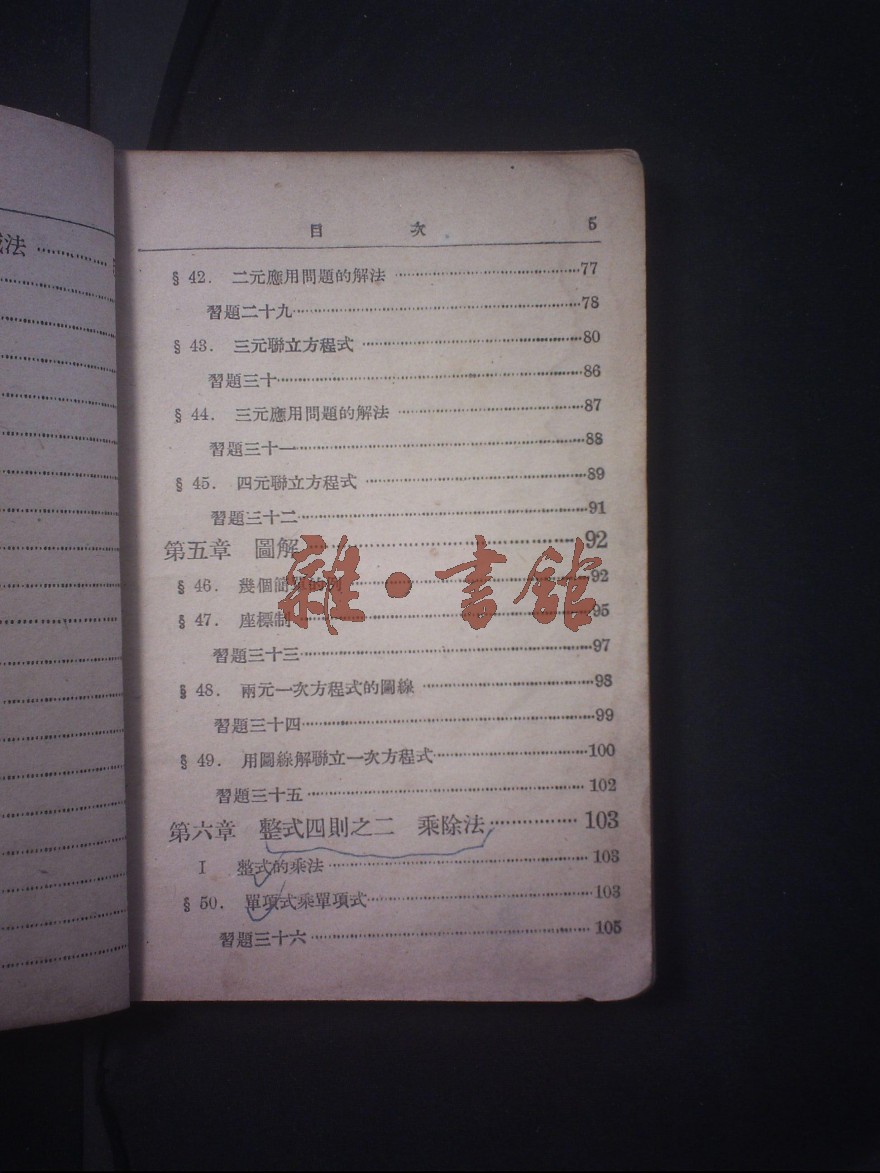 法
目 次 5
§ 42. 二元應用問題的解法 77
習題二十九 78
§ 43. 三元聯立方程式 80
習題三十 86
§ 44. 三元應用問題的解法 87
習題三十一 88
§ 45. 四元聯立方程式 89
習題三十二 91
第五章 圖解 92
§ 46. 幾個簡單的例 92
§ 47. 座標制 95
習題三十三 97
§ 48. 兩元一次方程式的圖線 98
習題三十四 99
§ 49. 用圖線解聯立一次方程式 100
習題三十五 102
第六章 整式四則之二 乘除法 103
I 整式的乘法 103
§ 50. 單項式乘單項式 103
習題三十六 105
雜·書館